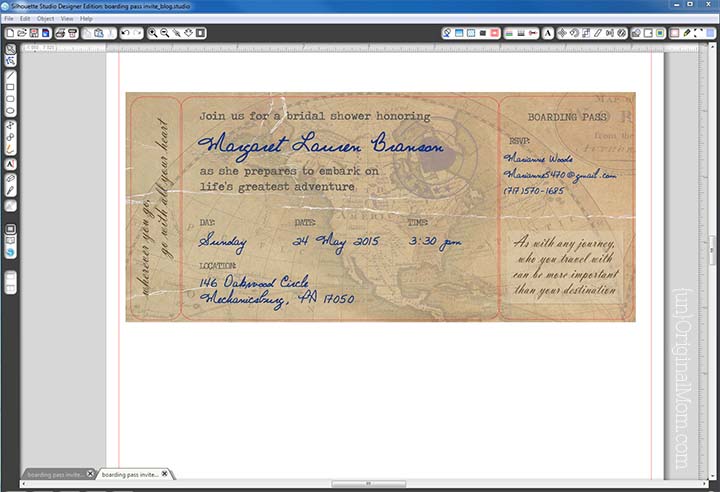 Silhouette Studio Designer Edition: boarding pass invite_blog.studio
File Edit Object View Help
wherever you go,
go with all your heart
Join us for a bridal shower honoring
Margaret Lauren Branson
as she prepares to embark on
life's greatest adventure
DAY: DATE: TIME:
Sunday 24 May 2015 3:30 pm
LOCATION:
146 Oakwood Circle
Mechanicsburg, PA 17050
BOARDING PASS
RSVP:
Marianne Woods
Marianne5470@gmail.com
(717)570-1685
As with any journey,
who you travel with
can be more important
than your destination
{un}OriginalMom.com
boarding pass invite... boarding pass invite...